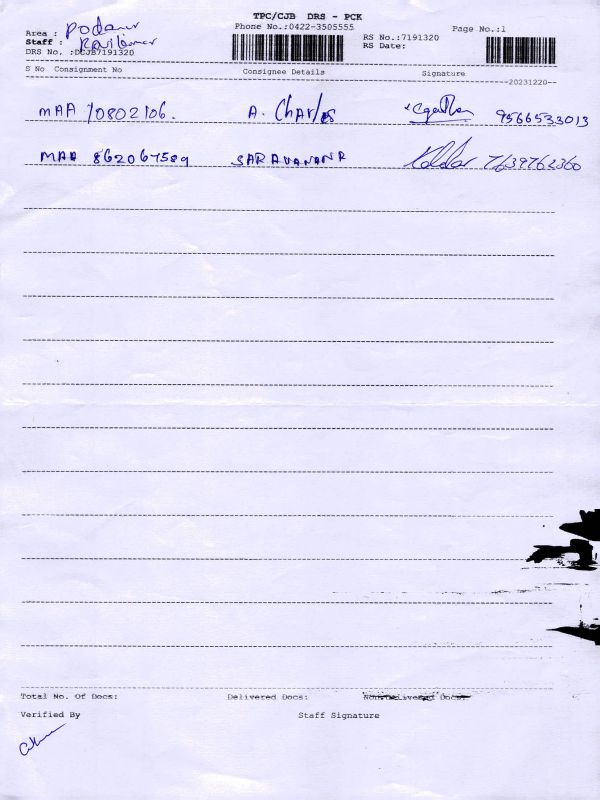 TPC/CJB DRS - PCK
Area : Podanur Phone No.:0422-3505555 RS No.:7191320 Page No.:1
Staff : RS Date:
DRS No. :DCJB7191320
S No Consignment No Consignee Details Signature
--20231220--
MAA 10802106. A. Charles 9566533013
MAA 862067589 SARAVANANA 7639763360
Total No. Of Docs: Delivered Docs: Non-Delivered Docs:
Verified By Staff Signature